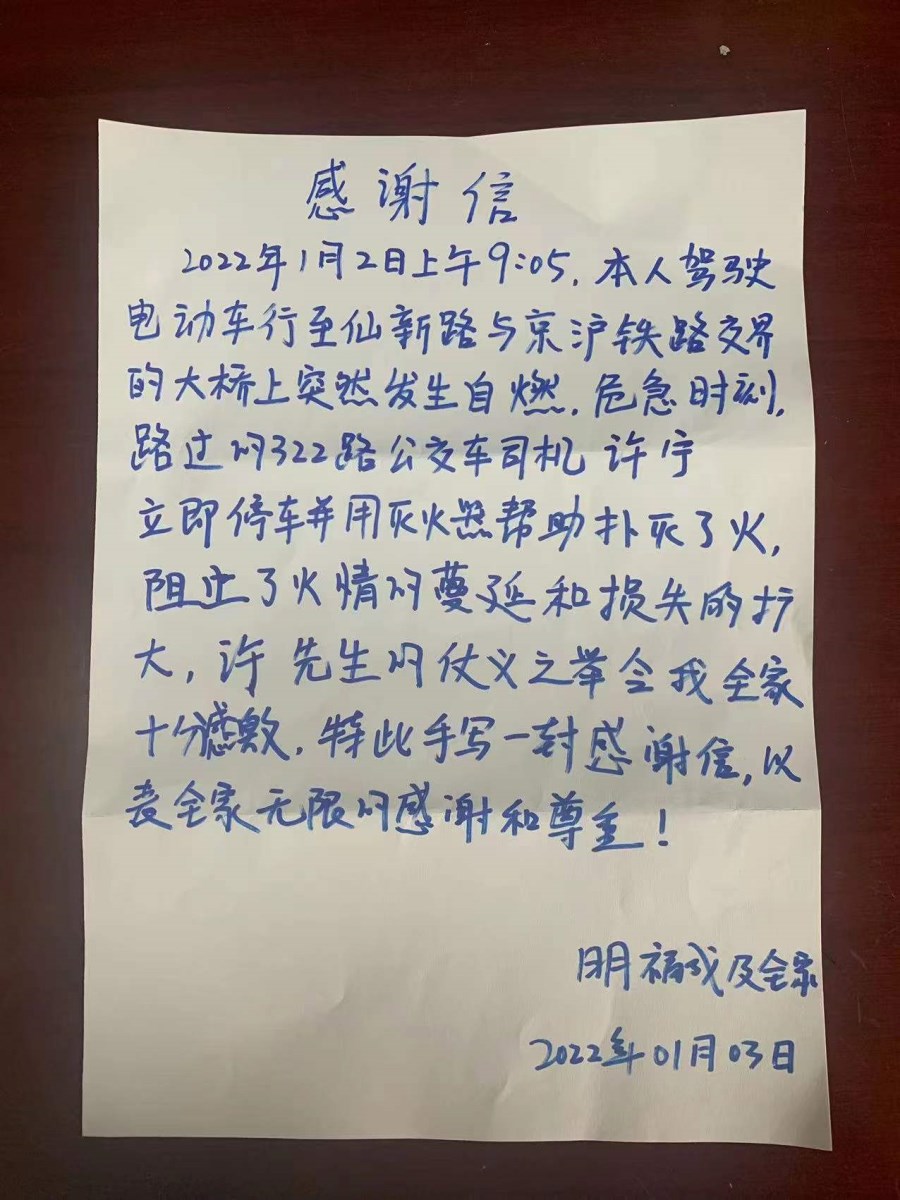 感谢信
2022年1月2日上午9:05,本人驾驶
电动车行至仙新路与京沪铁路交界
的大桥上突然发生自燃,危急时刻,
路过的322路公交车司机 许宁
立即停车并用灭火器帮助扑灭了火,
阻止了火情的蔓延和损失的扩
大,许 先生的仗义之举令我全家
十分感激,特此手写一封感谢信,以
表全家无限的感谢和尊重!
明福成及全家
2022年01月03日